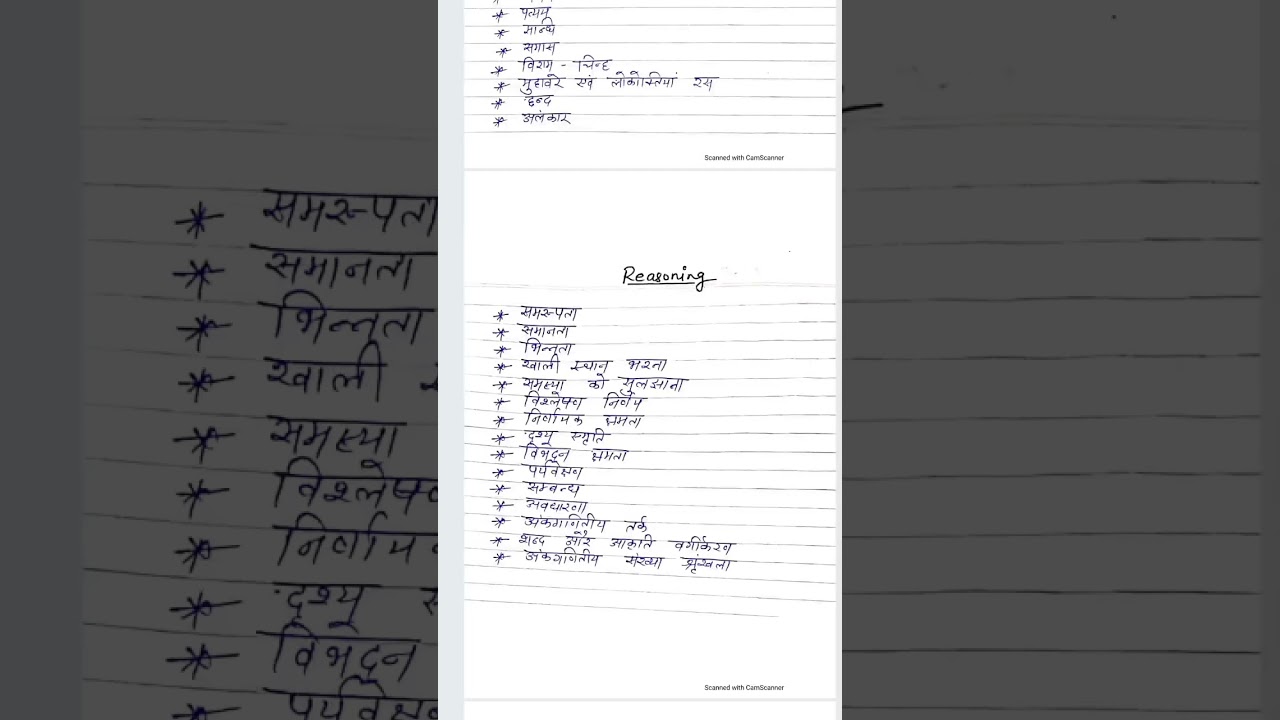 * प्रत्यय
* सन्धि
* समास
* विराम - चिन्ह
* मुहावरे एवं लोकोक्तियां रस
* छन्द
* अलंकार
Scanned with CamScanner
Reasoning
* समरूपता
* समानता
* भिन्नता
* खाली स्थान भरना
* समस्या को सुलझाना
* विश्लेषण निर्णय
* निर्णायक क्षमता
* दृश्य स्मृति
* विभेदन क्षमता
* पर्यवेक्षण
* सम्बन्ध
* अवधारणा
* अंकगणितीय तर्क
* शब्द और आकृति वर्गीकरण
* अंकगणितीय संख्या श्रृंखला
Scanned with CamScanner